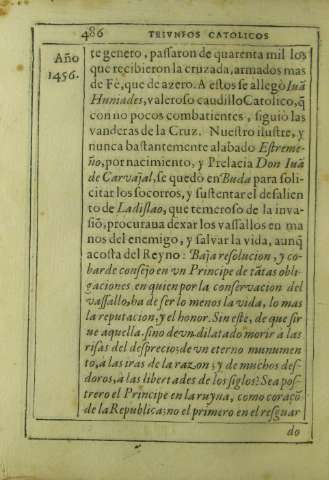 486 TRIVNFOS CATOLICOS
Año
1456.
te genero, passaron de quarenta mil los
que recibieron la cruzada, armados mas
de Fè, que de azero. A estos se allegò Iuã
Humiades, valeroso caudillo Catolico, q̃
con no pocos combatientes, siguiò las
vanderas de la Cruz. Nuestro ilustre, y
nunca bastantemente alabado Estreme-
ño, por nacimiento, y Prelacia Don Iuã
de Carvajal, se quedò en Buda para soli-
citar los socorros, y sustentar el desalien
to de Ladislao, que temeroso de la inva-
siõ, procuraua dexar los vassallos en ma
nos del enemigo, y salvar la vida, aunq̃
acosta del Reyno: Baja resolucion, y co-
barde consejo en vn Principe de tãtas obli-
gaciones en quien por la conservacion del
vassallo, ha de ser lo menos la vida, lo mas
la reputacion, y el honor. Sin este, de que sir
ue aquella. sino de vn dilatado morir à las
risas del desprecio; de vn eterno munumen
to, à las iras de la razon; y de muchos des-
doros, à las libertades de los siglos? Sea pos-
trero el Principe en la ruyna, como coraçõ
de la Republica; no el primero en el resguar
do